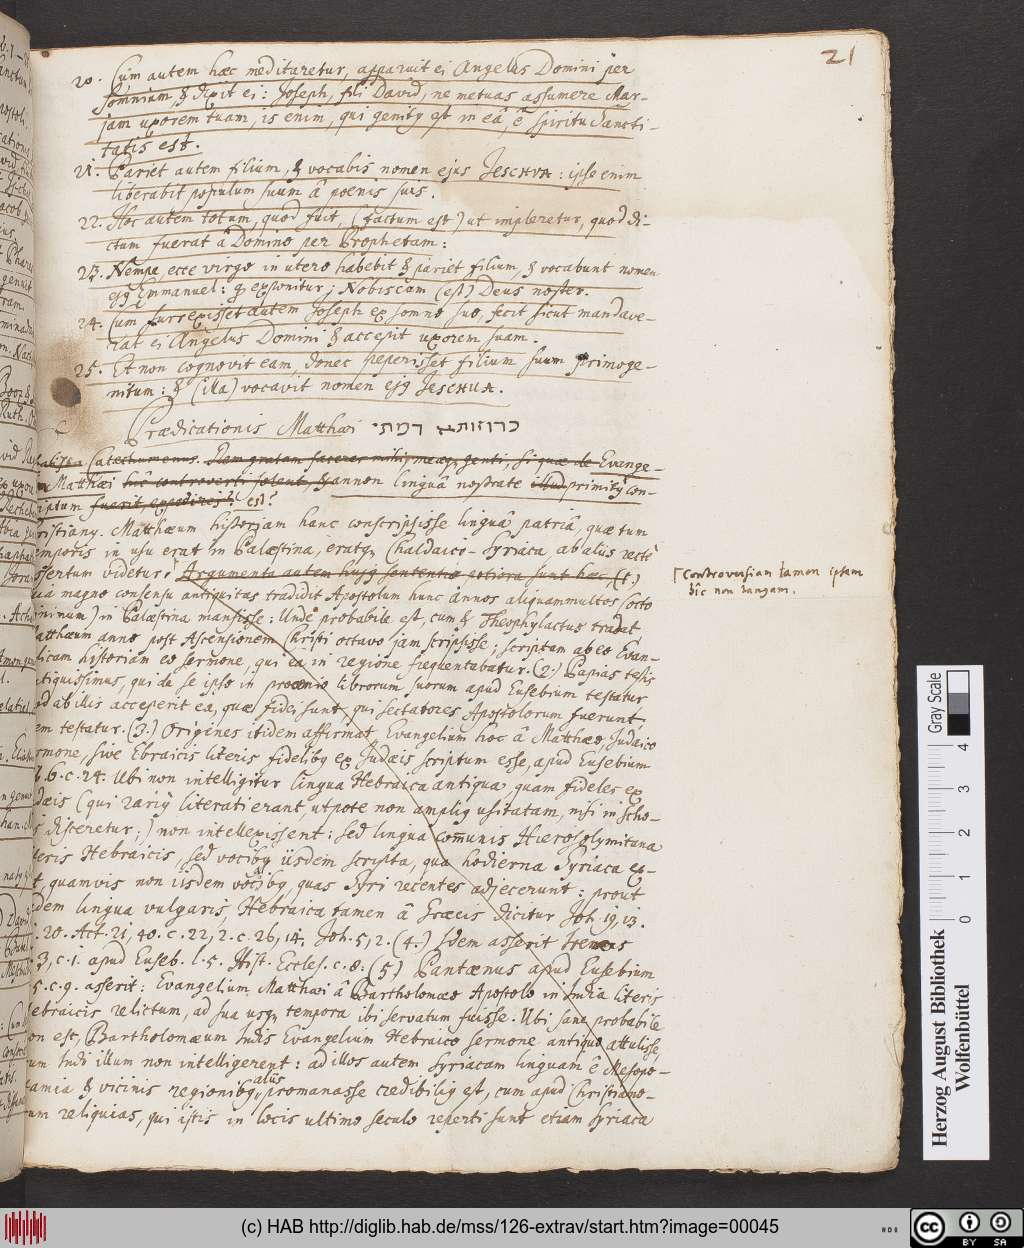 21
20. Cum autem hæc meditaretur, apparuit ei Angelus Domini per
somnium & dixit ei: Joseph, fili David, ne metuas assumere Mar-
jam uxorem tuam, is enim, qui genitus est in eâ, è spiritu Sancti-
tatis est.
21. Pariet autem filium, & vocabis nomen ejus JESCHUA: ipse enim
liberabit populum suum â poenis suis.
22. Hoc autem totum, quod fuit, (factum est) ut impleretur, quod di-
ctum fuerat â Domino per Prophetam:
23. Nempe, ecce virgo in utero habebit & pariet filium, & vocabunt nomen
ejus Emmanuel: q exponitur; Nobiscum (est) Deus noster.
24. Cum surrexisset autem Joseph ex somno suo, fecit sicut mandave-
rat ei Angelus Domini & accepit uxorem suam.
25. Et non cognovit eam, donec peperisset filium suum primoge-
nitum: & (illa) vocavit nomen ejus JESCHUA.
Prædicationis Matthæi כרוזותא דמתי
Catechumenus. Rem gratam feceres mihi, meæque genti, si quæ de Evange-
Matthæi hîc controverti solent, annon linguâ nostrate illud primitus con-
scriptum fuerit, expedires? est?
Christianus. Matthæum historiam hanc conscripsisse linguâ patriâ, quæ tum
temporis in usu erat in Palæstina, eratque Chaldaico-Syriaca, ab aliis rectè
assertum videtur. Argumenta autem hujus sententiæ potiora sunt hæc. (1.)
quia magno consensu antiquitas tradidit Apostolum hunc annos aliquammultos (octo
minimum) in Palæstina mansisse: Unde probabile est, cum & Theophylactus tradat
Matthæum anno post Ascensionem Christi octavo jam scripsisse; scriptam ab eo Evan-
gelicam historiam eo sermone, qui eâ in regione frequentabatur. (2.) Papias testis
antiquissimus, qui de se ipso in procemio librorum suorum apud Eusebium testatur
quod ab illis acceperit ea, quæ fidei sunt, qui sectatores Apostolorum fuerunt
idem testatur. (3.) Origines itidem affirmat, Evangelium hoc â Matthæo, Judaico
sermone, sive Ebraicis literis fidelibus ex Judæis scriptum esse, apud Eusebium
l. 6. c. 24. Ubi non intelligitur lingua Hebraica antiqua, quam fideles ex
Judæis (qui rarius literati erant, utpote non amplius usitatam, nisi in scho-
lis disceretur;) non intellexissent: sed lingua communis Hierosolymitana
literis Hebraicis, sed vocibus iisdem scripta, qua hodierna Syriaca ex-
tat, quamvis non iisdem vocibus, quas Syri recentes adjecerunt: prout
eadem lingua vulgaris, Hebraica tamen â Græcis dicitur Joh. 19, 13.
20. Act. 21, 40. c. 22, 2. c. 26, 14. Joh. 5, 2. (4.) Idem asserit Irenæus
l. 3, c. 1. apud Euseb. l. 5. Hist. Eccles. c. 8: (5) Pantænus apud Eusebium
l. 5. c. 9. asserit: Evangelium Matthæi â Bartholomæo Apostolo in India literis
Hebraicis relictum, ad sua usque tempora ibi servatum fuisse. Ubi sane probabile
non est, Bartholomæum Indis Evangelium Hebraico sermone antiquo attulisse,
cum Indi illum non intelligerent: ad illos autem Syriacam linguam è Mesopo-
tamia & vicinis regionibus aliis promanasse credibilius est, cum apud Christiano-
rum reliquias, qui istis in locis ultimo seculo reperti sunt etiam Syriaca
Controversiam tamen ipsam
hîc non tangam.
Gray Scale
0 1 2 3 4
Herzog August Bibliothek
Wolfenbüttel
(c) HAB http://diglib.hab.de/mss/126-extrav/start.htm?image=00045
cc BY SA